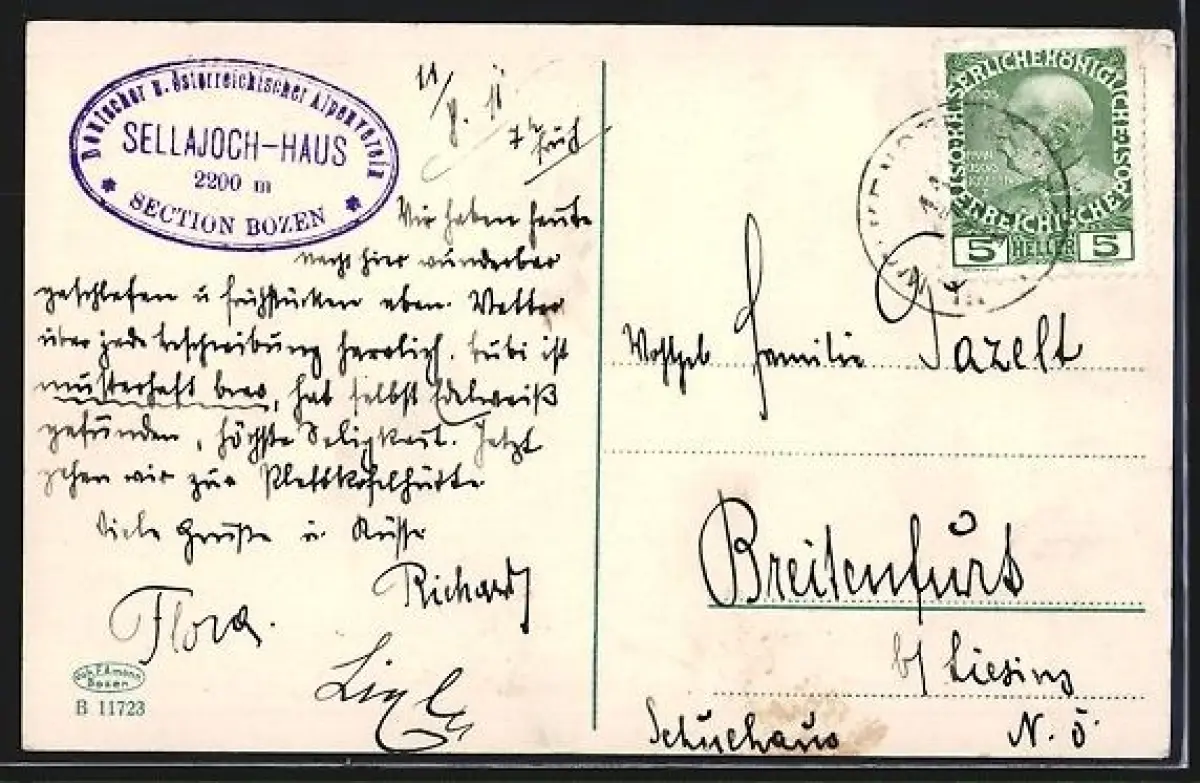 Deutscher u. Österreichischer Alpenverein
SELLAJOCH-HAUS
2200 m
SECTION BOZEN
11/8. 11
7 früh
Wir haben heute
nachts hier wunderbar
geschlafen u frühstücken eben. Wetter
über jede Beschreibung herrlich. Bubi ist
musterhaft brav, hat selbst Edelweiß
gefunden, höchste Seligkeit. Jetzt
gehen wir zur Plattkofelhütte
Viele Grüße u. Küsse
Richard
Flora.
Joh. F. Amonn
Bozen
B 11723
KAISERLICHE KÖNIGLICHE ÖSTERREICHISCHE POST
5 HELLER 5
Wohlgeb Familie Pazelt
Breitenfurt
b/ Liesing
Schulhaus N. Ö.